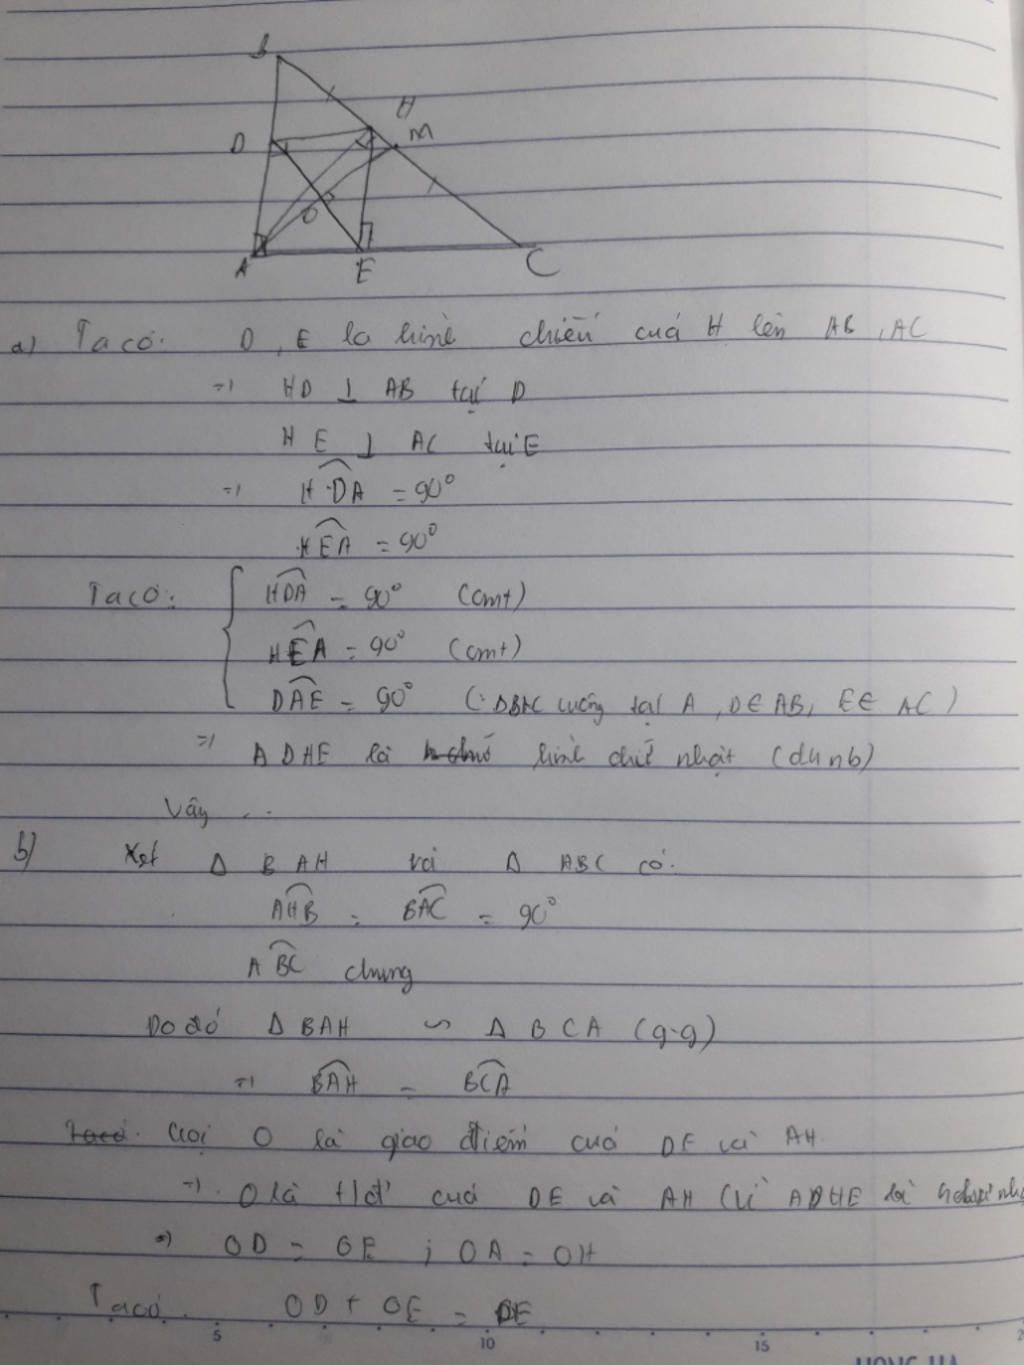 B
H
D
M
O
A
E
C
a) Ta có: D, E là hình chiếu của H lên AB, AC
=> HD ⊥ AB tại D
HE ⊥ AC tại E
=> HDA = 90°
HEA = 90°
Ta có: { HDA = 90° (cmt)
HEA = 90° (cmt)
DAE = 90° (ΔBAC vuông tại A, D∈AB, E∈AC)
=> ADHE là hình chữ nhật (dhnb)
Vậy ...
b) Xét Δ BAH và Δ ABC có:
AHB = BAC = 90°
ABC chung
Do đó Δ BAH ∽ Δ BCA (g-g)
=> BAH = BCA
Ta có: Gọi O là giao điểm của DE và AH
=> O là t/đ của DE và AH (Vì ADHE là
=> OD = OE ; OA = OH
Ta có OD + OE = DE
5 10 15
HONG HA